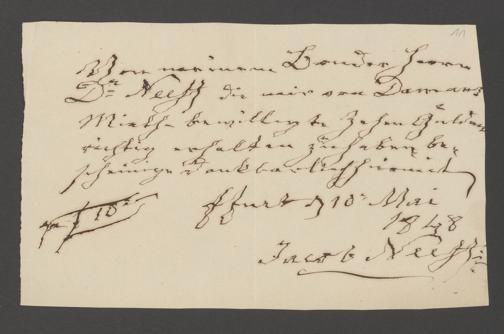 11
Von meinem Bruder Herrn
Dr. Neeff die mir von Damans
Mieth bewilligte Zehen Gulden
richtig erhalten zu haben be-
scheinige dankbarlich hiermit
f 10 ffurt d 10n Mai
1848
Jacob Neeff